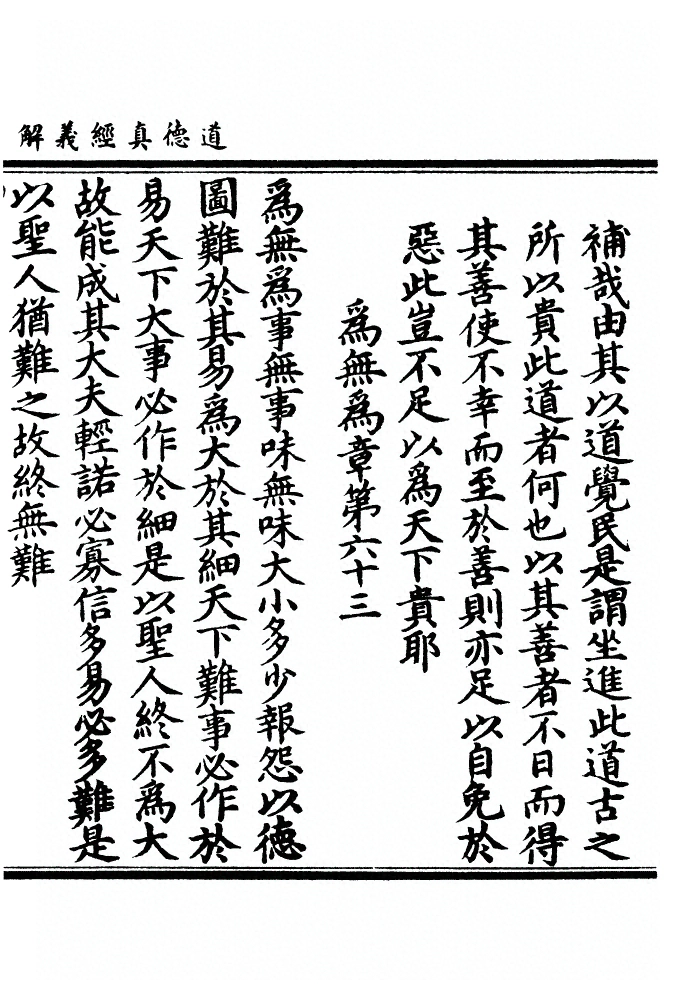 道德真經義解
補哉由其以道覺民是謂坐進此道古之
所以貴此道者何也以其善者不日而得
其善使不幸而至於善則亦足以自免於
惡此豈不足以為天下貴耶
為無為章第六十三
為無為事無事味無味大小多少報怨以德
圖難於其易為大於其細天下難事必作於
易天下大事必作於細是以聖人終不為大
故能成其大夫輕諾必寡信多易必多難是
以聖人猶難之故終無難